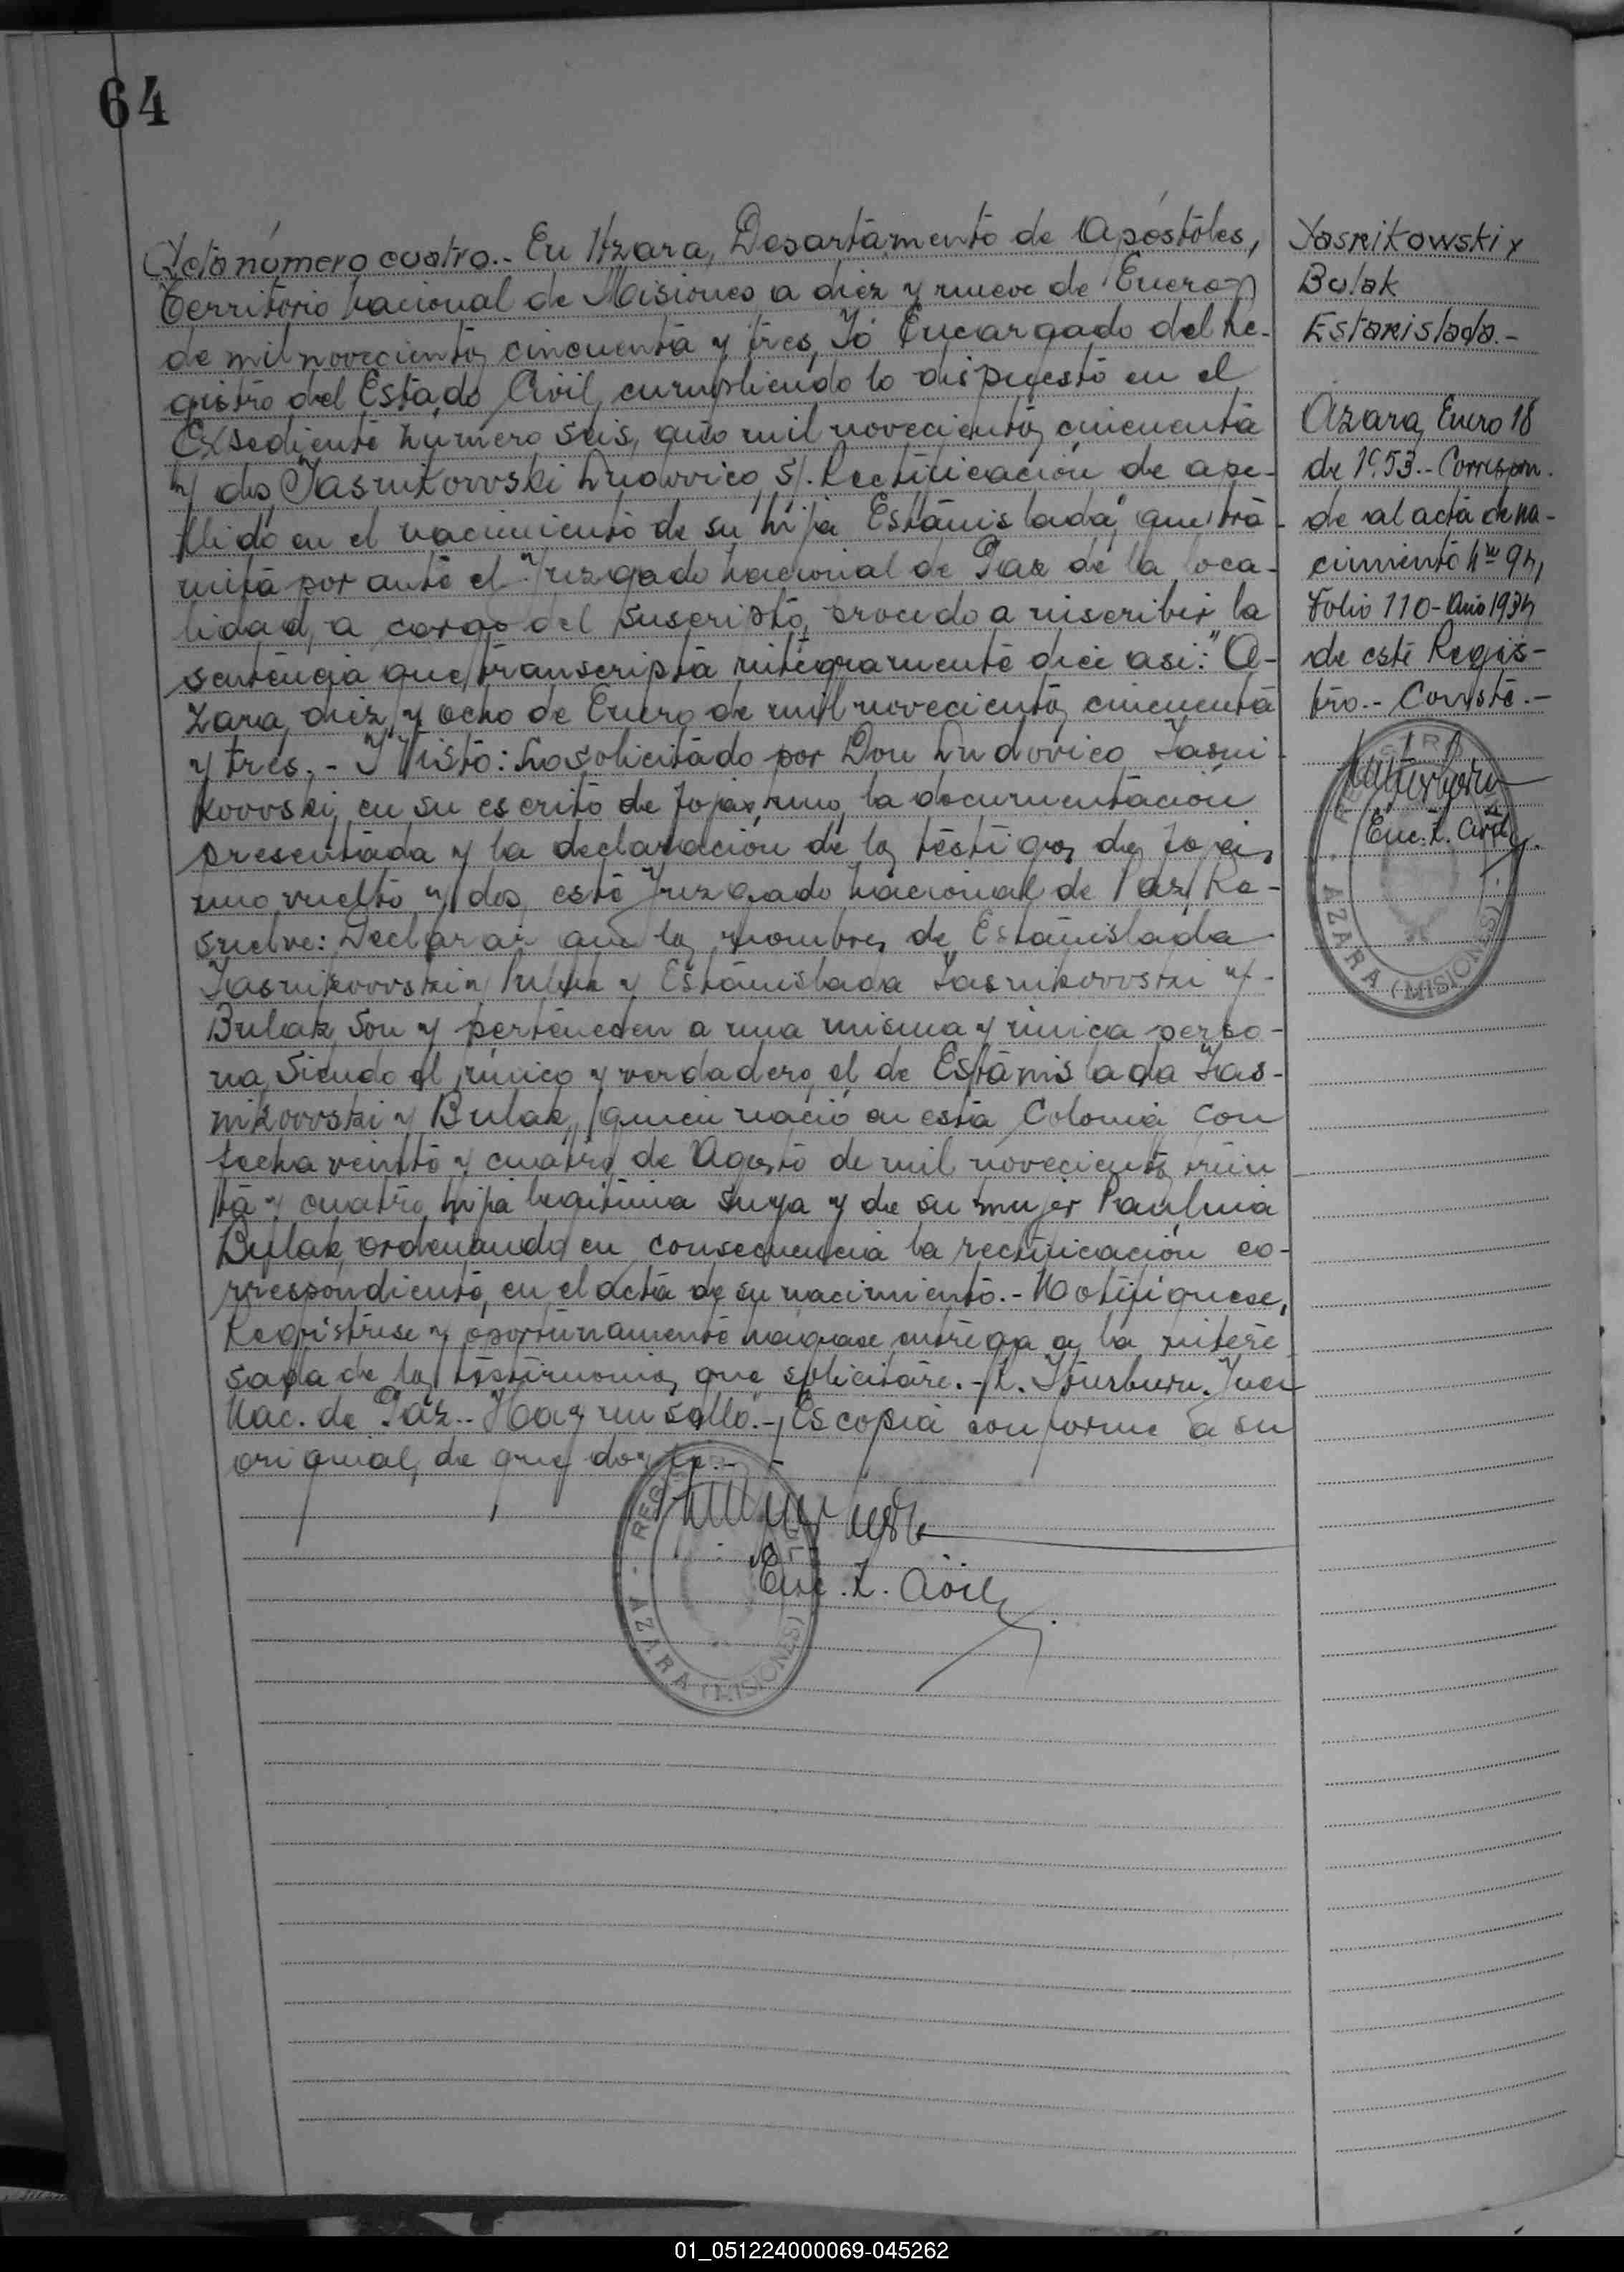 64
Acta número cuatro.- En Azara, Departamento de Apóstoles,
Territorio Nacional de Misiones a diez y nueve de Enero
de mil novecientos cincuenta y tres, Yó Encargado del Re-
gistro del Estado Civil, cumpliendo lo dispuesto en el
Expediente número seis, año mil novecientos cincuenta
y dos Jasnikowski Ludovico, S/. Rectificación de ape-
llido en el nacimiento de su hija Estanislada, que tra-
mita por ante el Juzgado Nacional de Paz de la loca-
lidad, a cargo del suscripto, procedo a inscribir la
sentencia que transcripta integramente dice asi: "A-
zara, diez y ocho de Enero de mil novecientos cincuenta
y tres.- Y Visto: Lo solicitado por Don Ludovico Jasni-
kowski, en su escrito de fojas uno, la documentación
presentada y la declaración de los testigos de fojas
uno vuelta y dos, este Juzgado Nacional de Paz, Re-
suelve: Declarar que los nombres de Estanislada
Jasnikowski y Estanislada Jasnikowski y
Bulak, son y pertenecen a una misma y única perso-
na, siendo el único y verdadero, el de Estanislada Jas-
nikowski y Bulak, quien nació en esta Colonia con
fecha veinte y cuatro de Agosto de mil novecientos trein
ta y cuatro, hija legitima suya y de su mujer Paulina
Bulak, ordenando en consecuencia la rectificación co-
rrespondiente, en el acta de su nacimiento.- Notifiquese,
Registrese y oportunamente hagase entrega a la intere
sada de los testimonios que solicitare.- Juez
Nac. de Paz.- Hay un sello.- Es copia conforme a su
original, de que doy fe.-
Enc. R. Civil
REGISTRO
AZARA (MISIONES)
Jasnikowski y
Bulak
Estanislada.-
Azara, Enero 18
de 1953.- Correspon.
de al acta de na-
cimiento Nº 94,
Folio 110- Año 1934
de este Regis-
tro.- Conste.-
Enc. R. Civil
REGISTRO
AZARA (MISIONES)
01_051224000069-045262